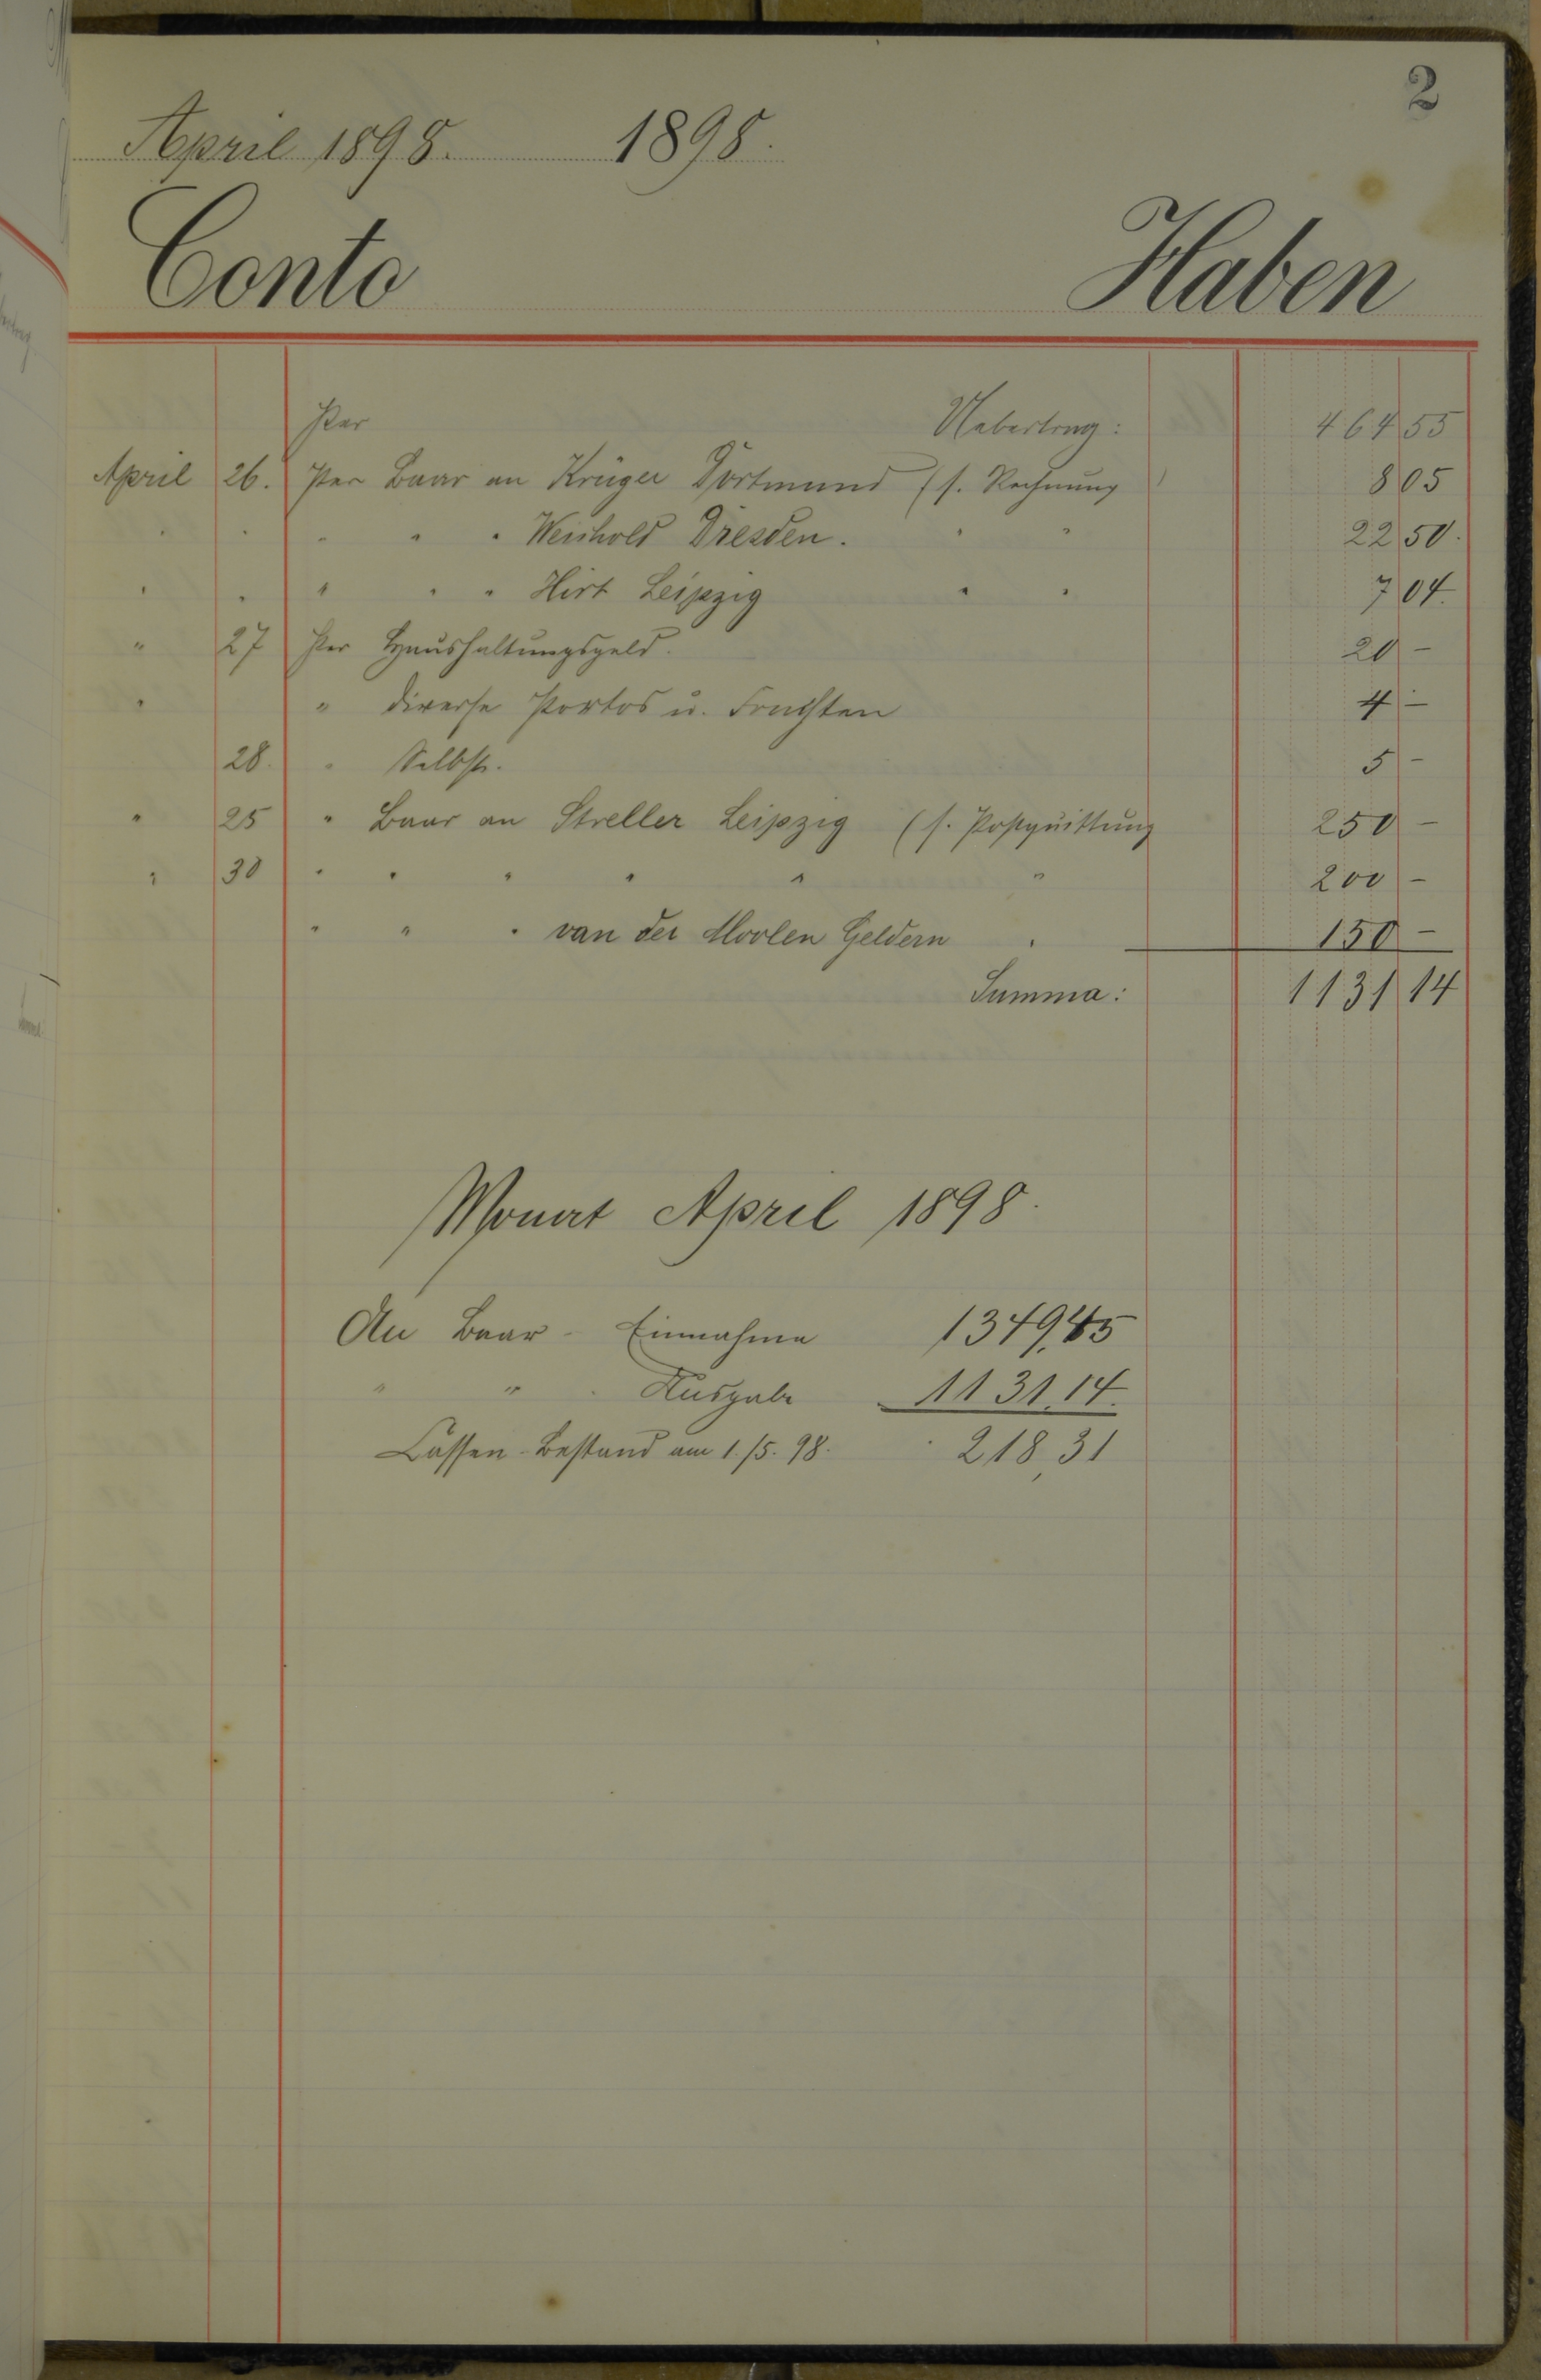 2
April 1898. 1898.
Conto Haben
Per Uebertrag: 464 55
April 26. Per Baar an Krüger Dortmund (s. Rechnung) 8 05
" " " " " Weichold Dresden. " " 22 50.
" " " " " Hirt Leipzig " " 7 04.
" 27 Per Haushaltungsgeld. 20 -
" " diverse Portos u. Frachten 4 -
28. " Selbst. 5 -
" 25 " Baar an Streller Leipzig (s. Postquittung 250 -
" 30 " " " " " " 200 -
" " " van der Moolen Geldern " 150 -
Summa: 1131 14
Monat April 1898.
An Baar - Einnahme 1349,45
" " - Ausgabe 1131,14.
Cassen-Bestand am 1./5. 98. 218,31